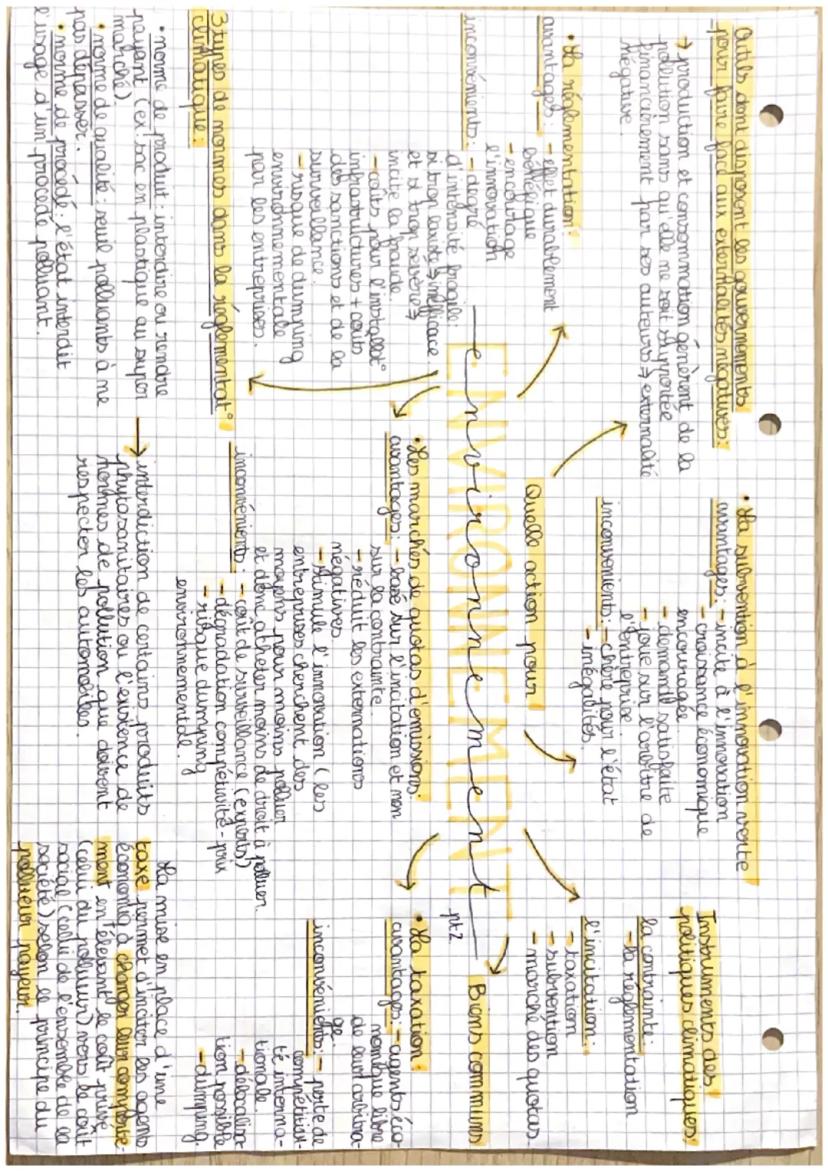 Outils dont disposent les gouvernements
pour faire face aux externalités négatives:
→ production et consommation génèrent de la
pollution sans qu'elle ne soit supportée
financièrement par ses auteurs ⇒ externalité
négative
• La réglementation:
avantages: - effet durablement
bénéfique
- encourage
l'innovation
inconvénients: - degré
d'intensité fragile:
si trop laxiste ⇒ inefficace
et si trop sévère ⇒
incite la fraude
- coûts pour l'installat°
infrastructures + coûts
des sanctions et de la
surveillance.
- risque de dumping
environnementale
par les entreprises.
3 types de normes dans la réglementat°
climatique:
• norme de produit: interdire ou rendre
payant (ex: sac en plastique au super
marché)
• norme de qualité: seuil polluants à ne
pas dépasser.
• norme de procédé: l'état interdit
l'usage d'un procédé polluant.
→ interdiction de certains produits
phytosanitaires ou l'existence de
normes de pollution que doivent
respecter les automobiles.
ENVIRONNEMENT
environnement
pt2
Quelle action pour
Biens communs
• La subvention à l'innovation verte
avantages: - incite à l'innovation
- croissance économique
encouragée
- demande satisfaite
- joue sur l'arbitre de
l'entreprise
inconvénients: - chère pour l'état
- inégalités.
• Les marchés de quotas d'émissions:
avantages: - basé sur l'incitation et non
sur la contrainte.
- réduit les externations
négatives
- stimule l'innovation (les
entreprises cherchent des
moyens pour moins polluer
et donc acheter moins de droit à polluer.
inconvénients: - coût de surveillance (experts)
- dégradation compétivité-prix
- risque dumping
environnemental.
Instruments des
politiques climatiques:
la contrainte:
- la réglementation
l'incitation:
- taxation
- subvention
- marché des quotas.
• La taxation:
avantages: - agents éco-
nomique libre
de leur arbitra-
ge
inconvénients: - perte de
compétitivi-
té interna-
tionale.
- délocalisa-
tion possible
- dumping.
La mise en place d'une
taxe permet d'inciter les agents
économiq à changer leur comporte-
ment en élevant le coût privé
(celui du pollueur) vers le coût
social (celui de l'ensemble de la
société) selon le principe du
pollueur payeur.